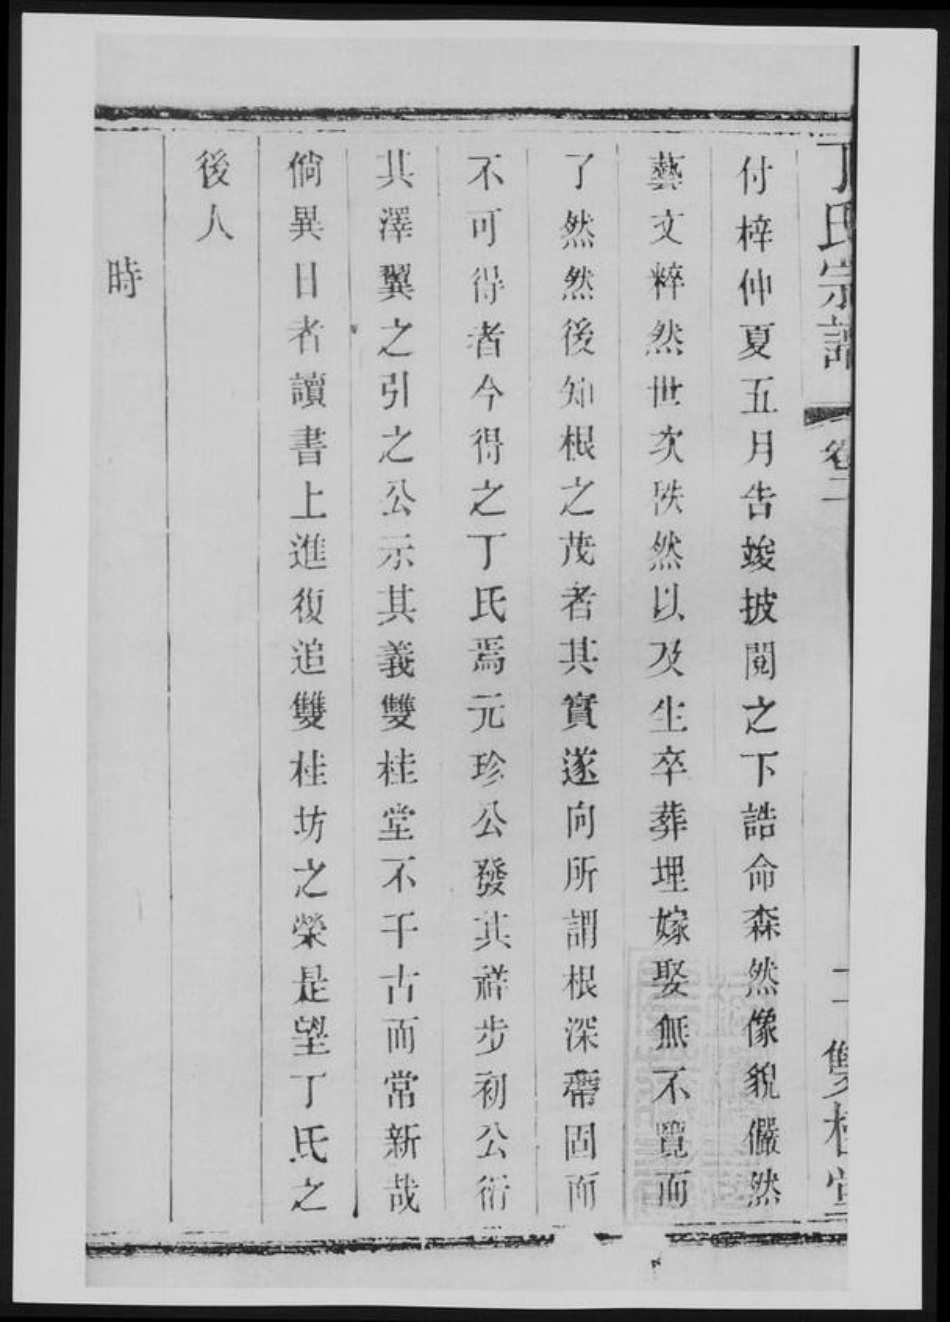 丁氏宗譜
卷二
二
雙桂堂
付梓仲夏五月告竣披閱之下誥命森然像貌儼然
藝文粹然世次秩然以及生卒葬埋嫁娶無不覽而
了然然後知根之茂者其實遂向所謂根深蒂固而
不可得者今得之丁氏焉元珍公發其祥步初公衍
其澤翼之引之公示其義雙桂堂不千古而常新哉
倘異日者讀書上進復追雙桂坊之榮是望丁氏之
後人
時